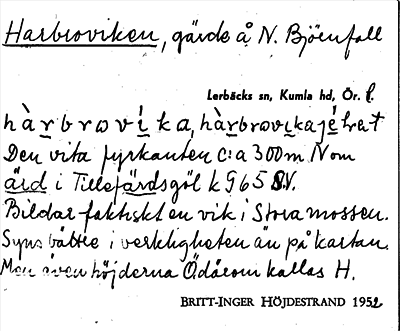 Harbroviken, gärde å N. Björnfall
Lerbäcks sn, Kumla hd, Ör. l.
hàrbrωvíka, hàrbrωvikajétrat
Den vita fyrkanten c:a 300 m N om
ärd i Tillefärdsgöl k 965 SV.
Bildar faktiskt en vik i Stora mossen.
Syns bättre i verkligheten än på kartan.
Men även höjderna Ödårom kallas H.
BRITT-INGER HÖJDESTRAND 1952